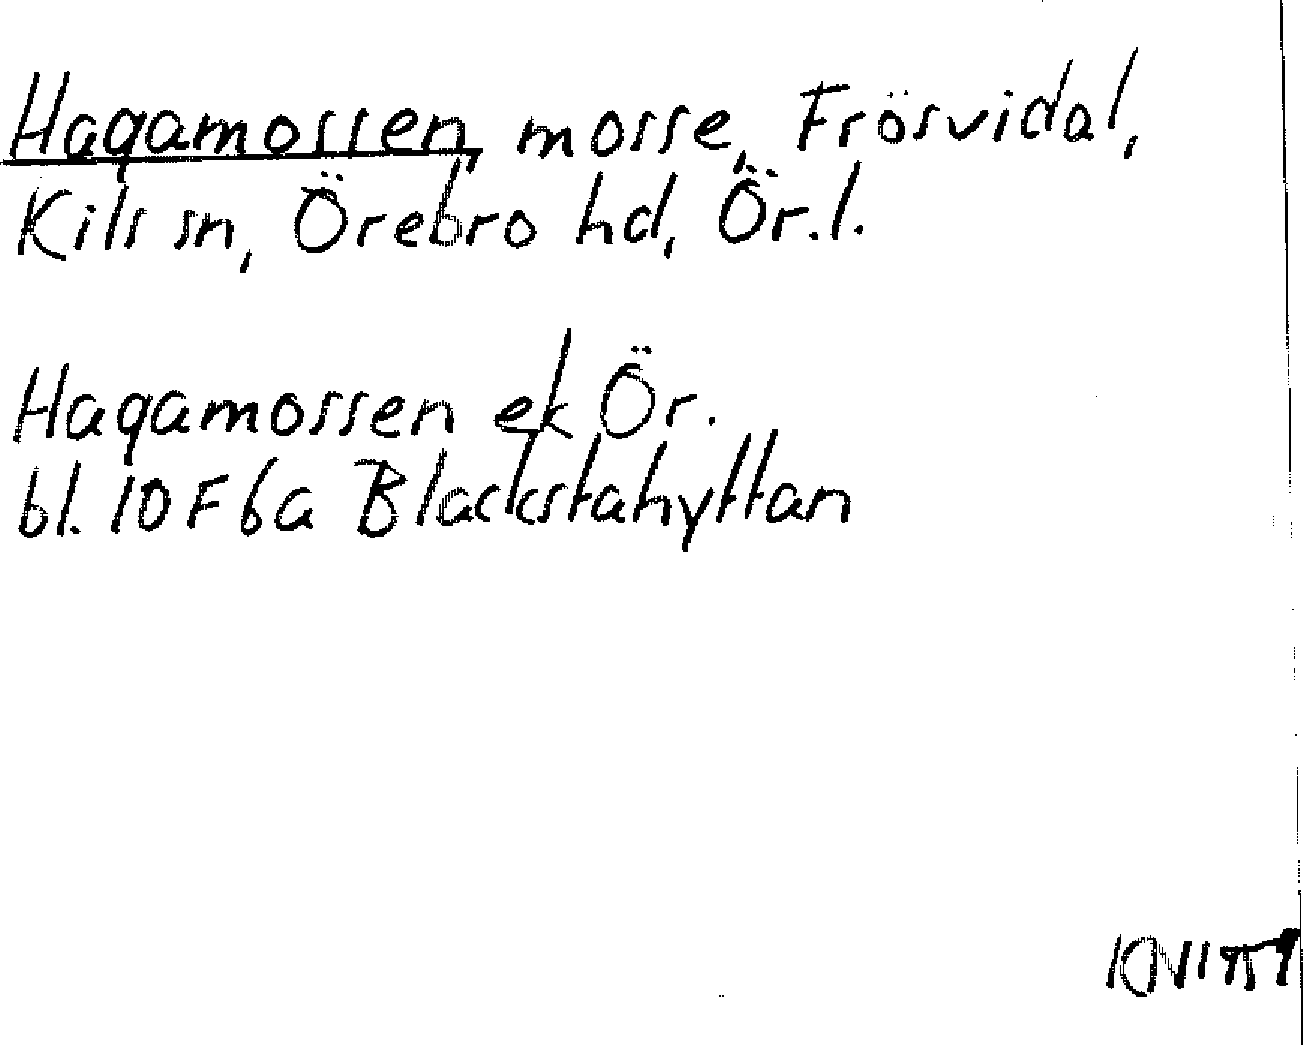 Hagamossen, mosse, Frösvidal,
Kils sn, Örebro hd, Ör.l.
Hagamossen ek Ör.
bl. 10F6a Blackstahyttan